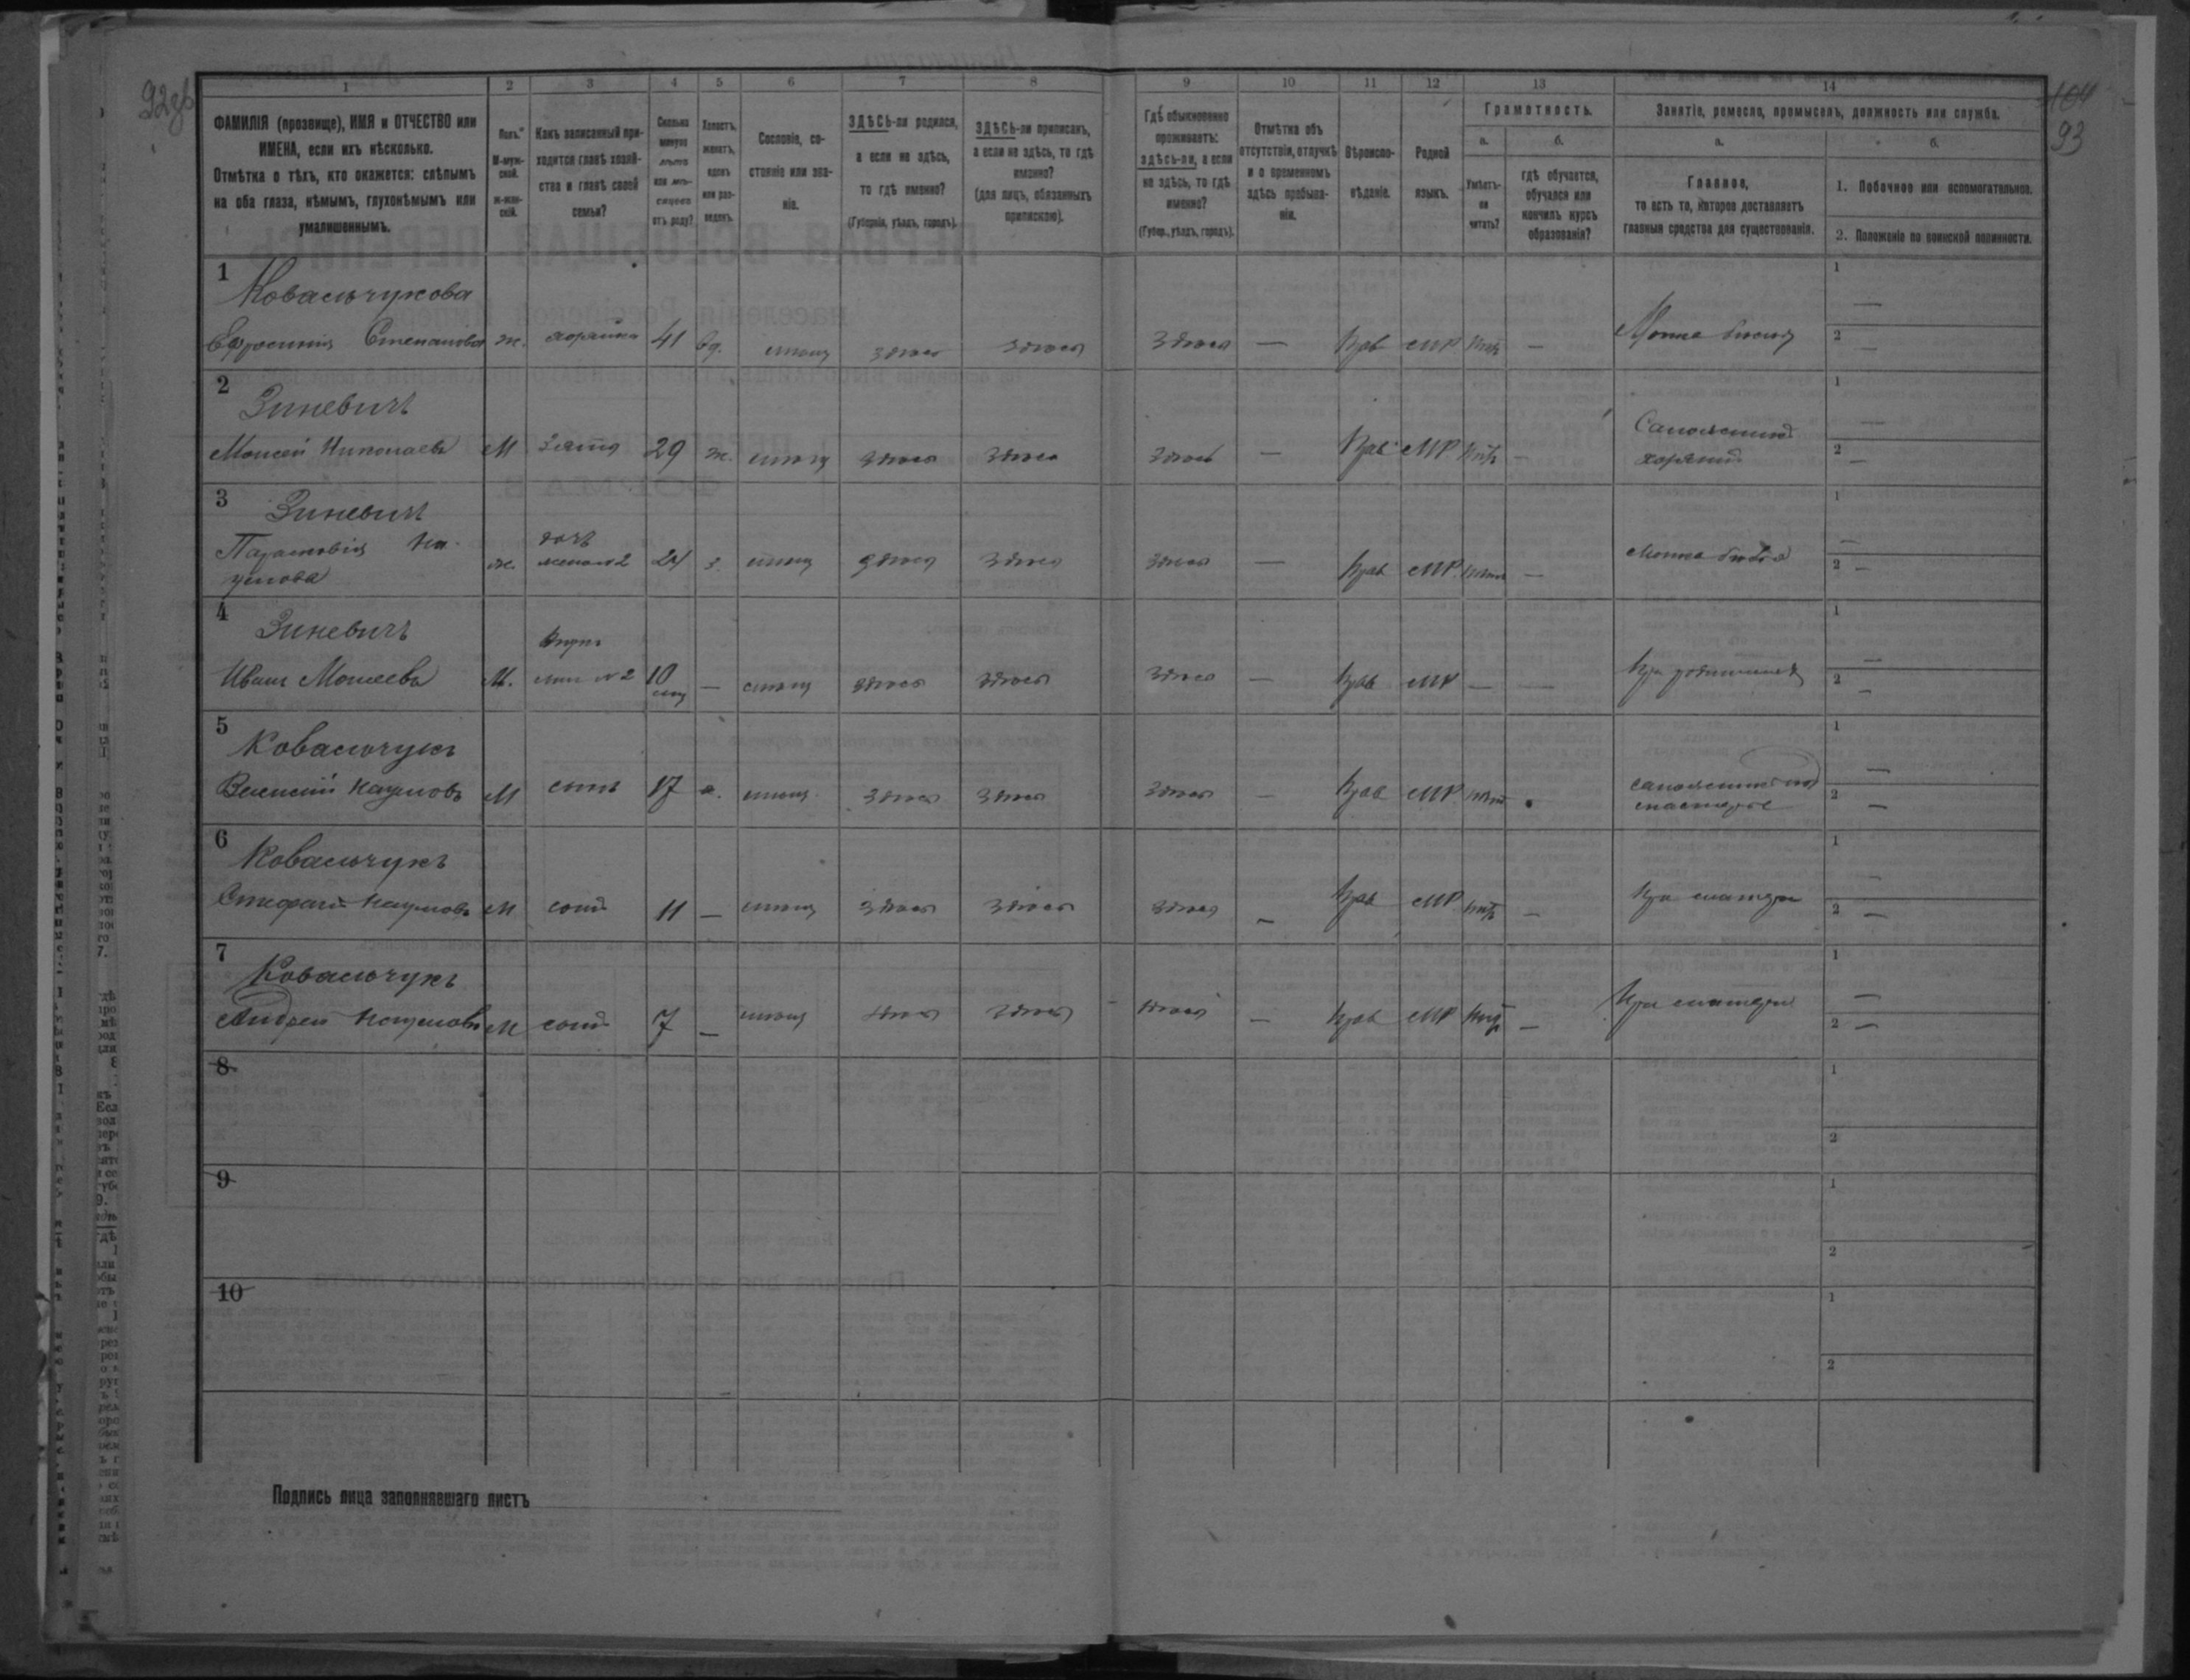 92об
104
93
1 2 3 4 5 6 7 8 9 10 11 12 13 14
ФАМИЛІЯ (прозвище), ИМЯ и ОТЧЕСТВО или
ИМЕНА, если ихъ нѣсколько.
Отмѣтка о тѣхъ, кто окажется: слѣпымъ
на оба глаза, нѣмымъ, глухонѣмымъ или
умалишеннымъ.
Полъ.
М-муж-
ской.
ж-жен-
скій.
Какъ записанный при-
ходится главѣ хозяй-
ства и главѣ своей
семьи?
Сколько
минуло
лѣтъ
или мѣ-
сяцевъ
отъ роду?
Холостъ,
женатъ,
вдовъ
или раз-
веденъ.
Сословіе, со-
стояніе или зва-
ніе.
ЗДѢСЬ-ли родился,
а если не здѣсь,
то гдѣ именно?
(Губернія, уѣздъ, городъ).
ЗДѢСЬ-ли приписанъ,
а если не здѣсь, то гдѣ
именно?
(для лицъ, обязанныхъ
припискою).
Гдѣ обыкновенно
проживаетъ:
здѣсь-ли, а если
не здѣсь, то гдѣ
именно?
(Губер., уѣздъ, городъ).
Отмѣтка объ
отсутствіи, отлучкѣ
и о временномъ
здѣсь пребыва-
ніи.
Вѣроиспо-
вѣданіе.
Родной
языкъ.
Грамотность.
а.
Умѣетъ-
ли
читать?
б.
гдѣ обучается,
обучался или
кончилъ курсъ
образованія?
Занятіе, ремесло, промыселъ, должность или служба.
а.
Главное,
то есть то, которое доставляетъ
главныя средства для существованія.
б.
1. Побочное или вспомогательное.
2. Положеніе по воинской повинности.
1 Ковальчукова
Ефросинія Степанова ж. хозяйка 41 вд. мѣщ здѣсь здѣсь здѣсь — Прав МР нѣтъ —
1 —
2 —
2 Зиневичъ
Моисей Николаевъ М зять 29 ж. мѣщ здѣсь здѣсь здѣсь — Прав МР нѣтъ — Сапожникъ
хозяинъ
1 —
2 —
3 Зиневичъ
Параскевія На-
умова ж. дочь
жена №2 24 з. мѣщ здѣсь здѣсь здѣсь — Прав МР нѣтъ —
1 —
2 —
4 Зиневичъ
Иванъ Моисеевъ М. внукъ
сынъ №2 10
мѣс — мѣщ здѣсь здѣсь здѣсь — Прав МР — — При родителяхъ
1 —
2 —
5 Ковальчукъ
Василій Наумовъ М сынъ 17 х. мѣщ здѣсь здѣсь здѣсь — Прав МР нѣтъ сапожникъ
1 —
2 —
6 Ковальчукъ
Стефанъ Наумовъ М сынъ 11 — мѣщ здѣсь здѣсь здѣсь — Прав МР нѣтъ — При матери
1 —
2 —
7 Ковальчукъ
Андрей Наумовъ М сынъ 7 — мѣщ здѣсь здѣсь здѣсь — Прав МР нѣтъ — При матери
1 —
2 —
8
1
2
9
1
2
10
1
2
Подпись лица заполнявшаго листъ